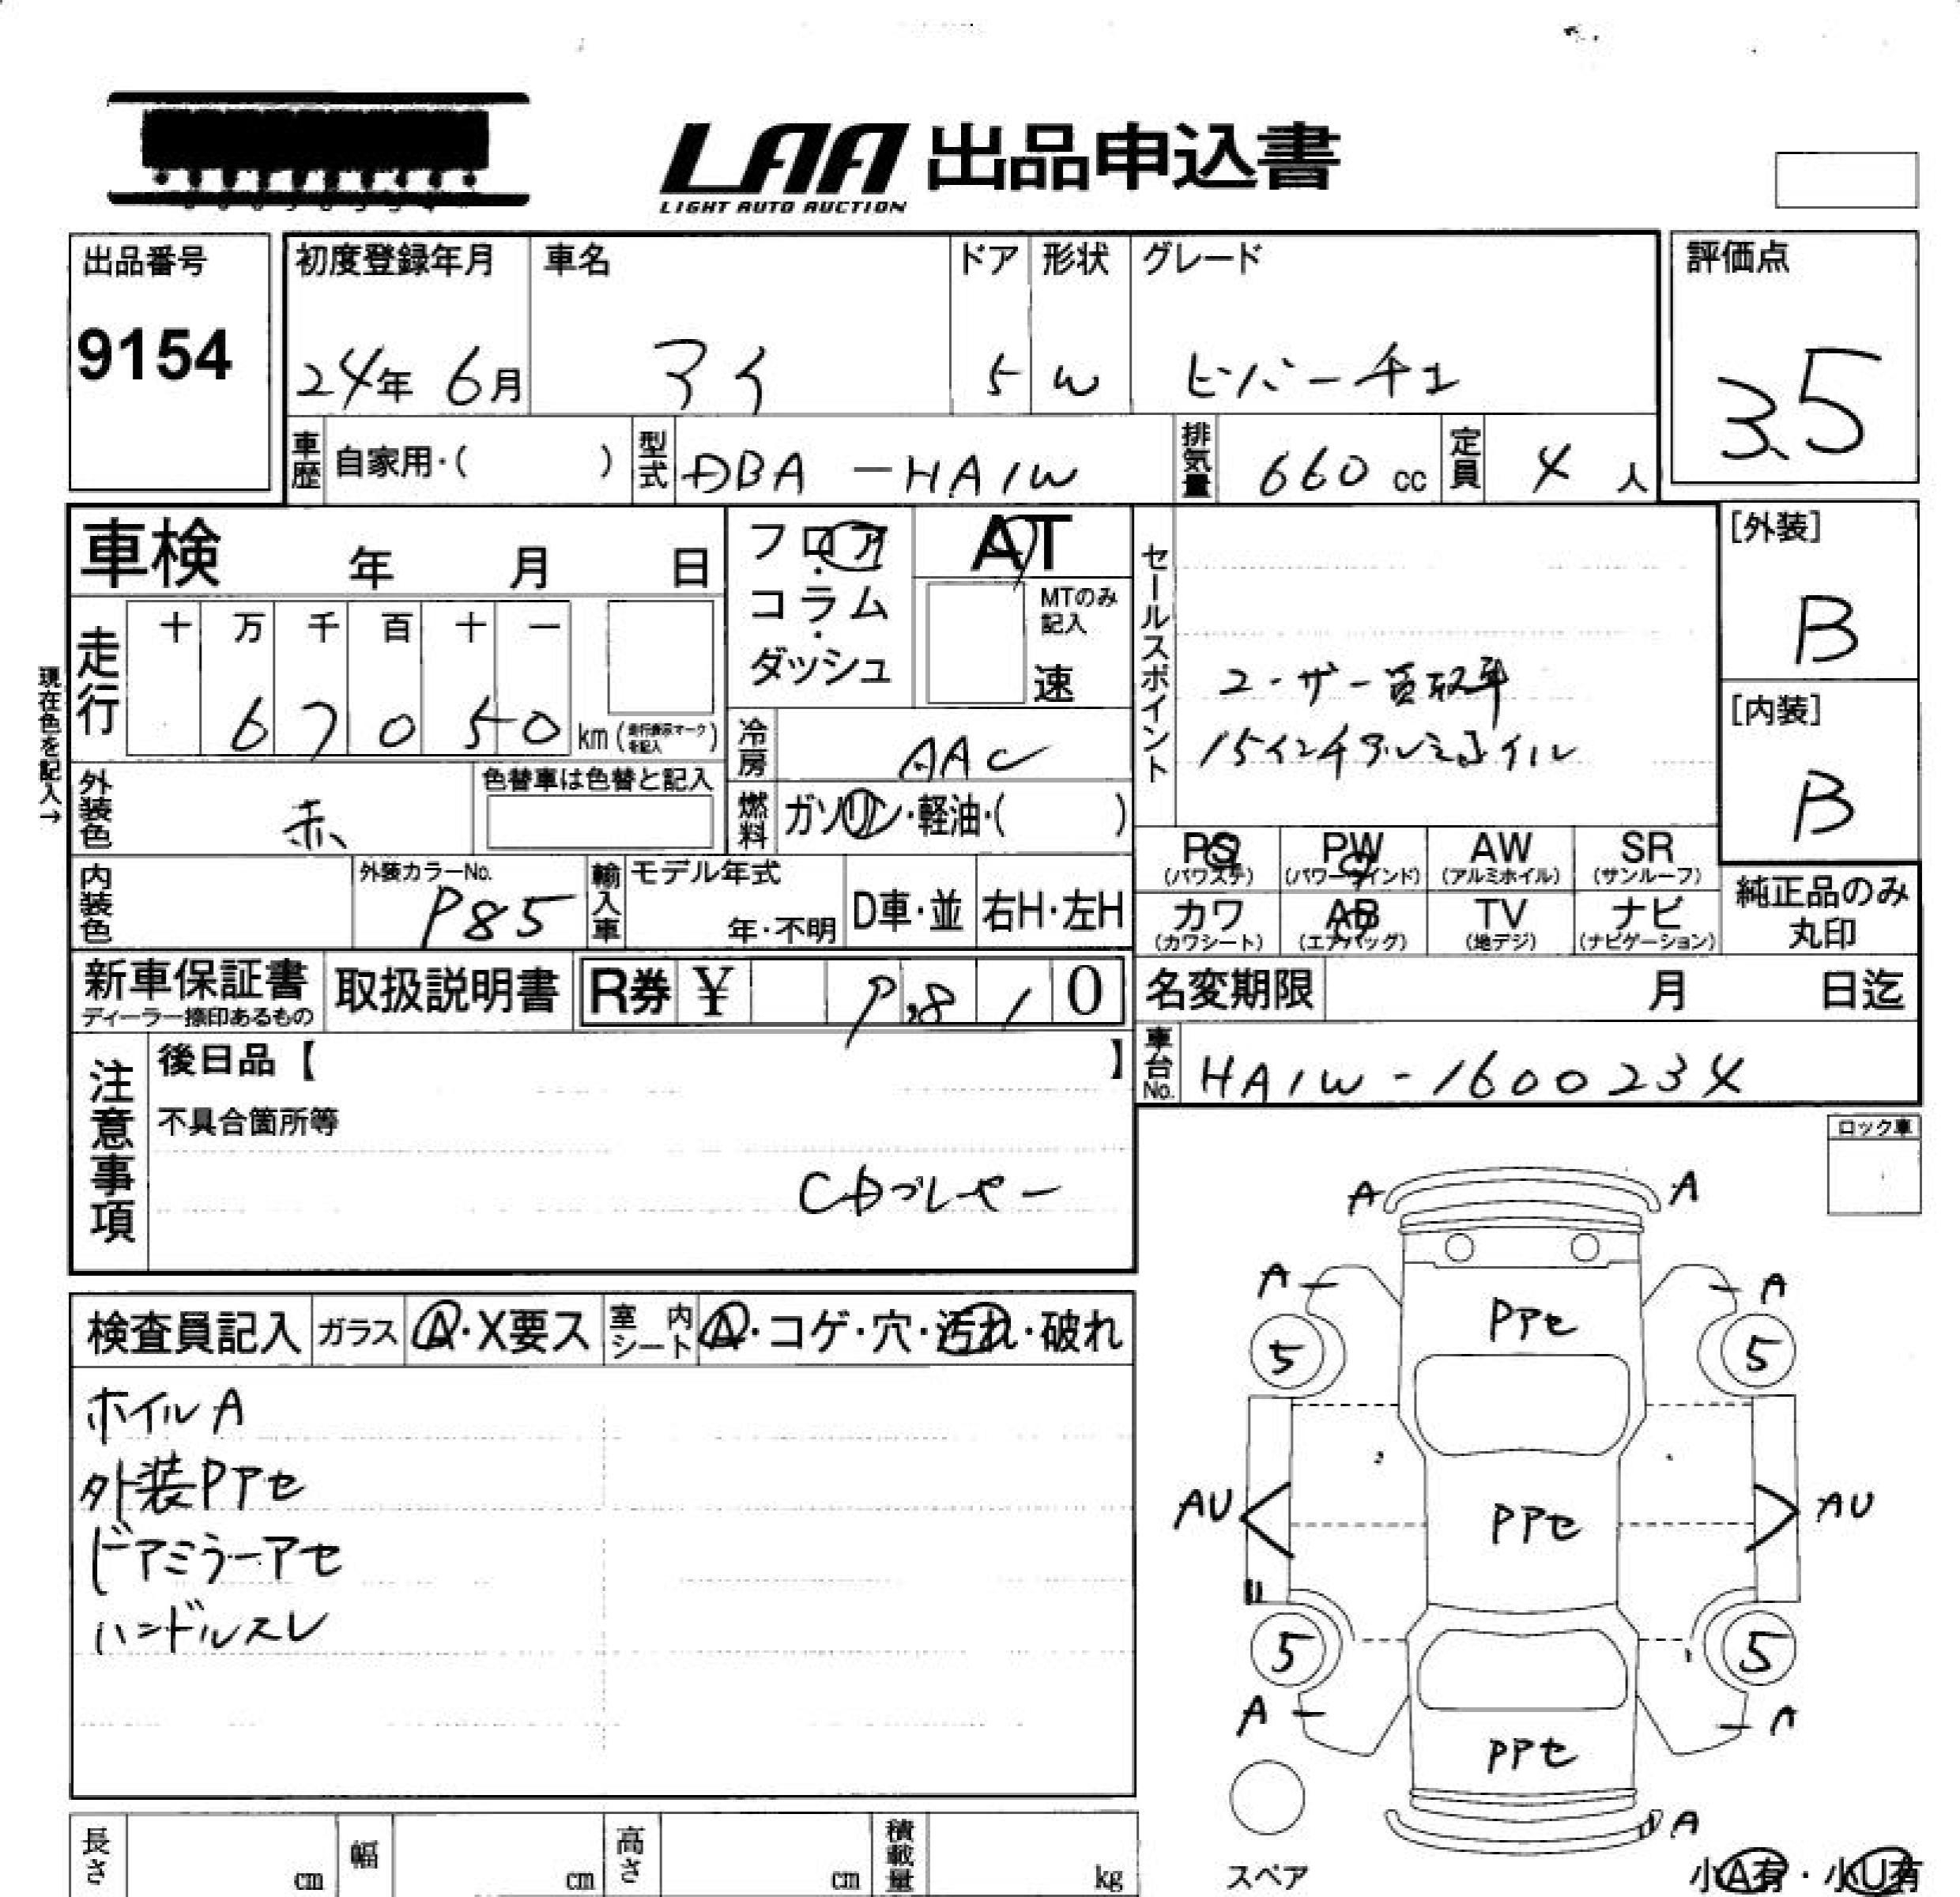 LAA 出品申込書
LIGHT AUTO AUCTION
出品番号
9154
初度登録年月
24年 6月
車名
アイ
ドア
5
形状
W
グレード
ビバーチェ
評価点
3.5
車歴 自家用・( )
型式 DBA-HA1W
排気量 660 cc
定員 4 人
車検 年 月 日
フロア・コラム・ダッシュ
AT
MTのみ記入
速
セールスポイント
ユーザー買取車
15インチアルミホイル
[外装]
B
[内装]
B
現在色を記入→
走行 十 万 千 百 十 一
6 7 0 5 0 km (走行表示マークを記入)
冷房 AAC
外装色 赤
色替車は色替と記入
燃料 ガソリン・軽油・( )
PS (パワステ)
PW (パワーウインド)
AW (アルミホイル)
SR (サンルーフ)
カワ (カワシート)
AB (エアバッグ)
TV (地デジ)
ナビ (ナビゲーション)
純正品のみ丸印
内装色
外装カラーNo.
P85
輸入車 モデル年式
年・不明
D車・並
右H・左H
新車保証書
ディーラー捺印あるもの
取扱説明書
R券 ¥ 9,810
名変期限 月 日迄
車台No. HA1W-1600234
注意事項
後日品【 】
不具合箇所等
CDプレーヤー
ロック車
検査員記入
ガラス A・X要ス
室内シート A・コゲ・穴・汚れ・破れ
ホイルA
外装Pアセ
ドアミラーアセ
ハンドルスレ
A A
A A
Pアセ
5 5
AU Pアセ AU
5 5
A A
Pアセ
A
スペア
小A有・小U有
長さ cm
幅 cm
高さ cm
積載量 kg